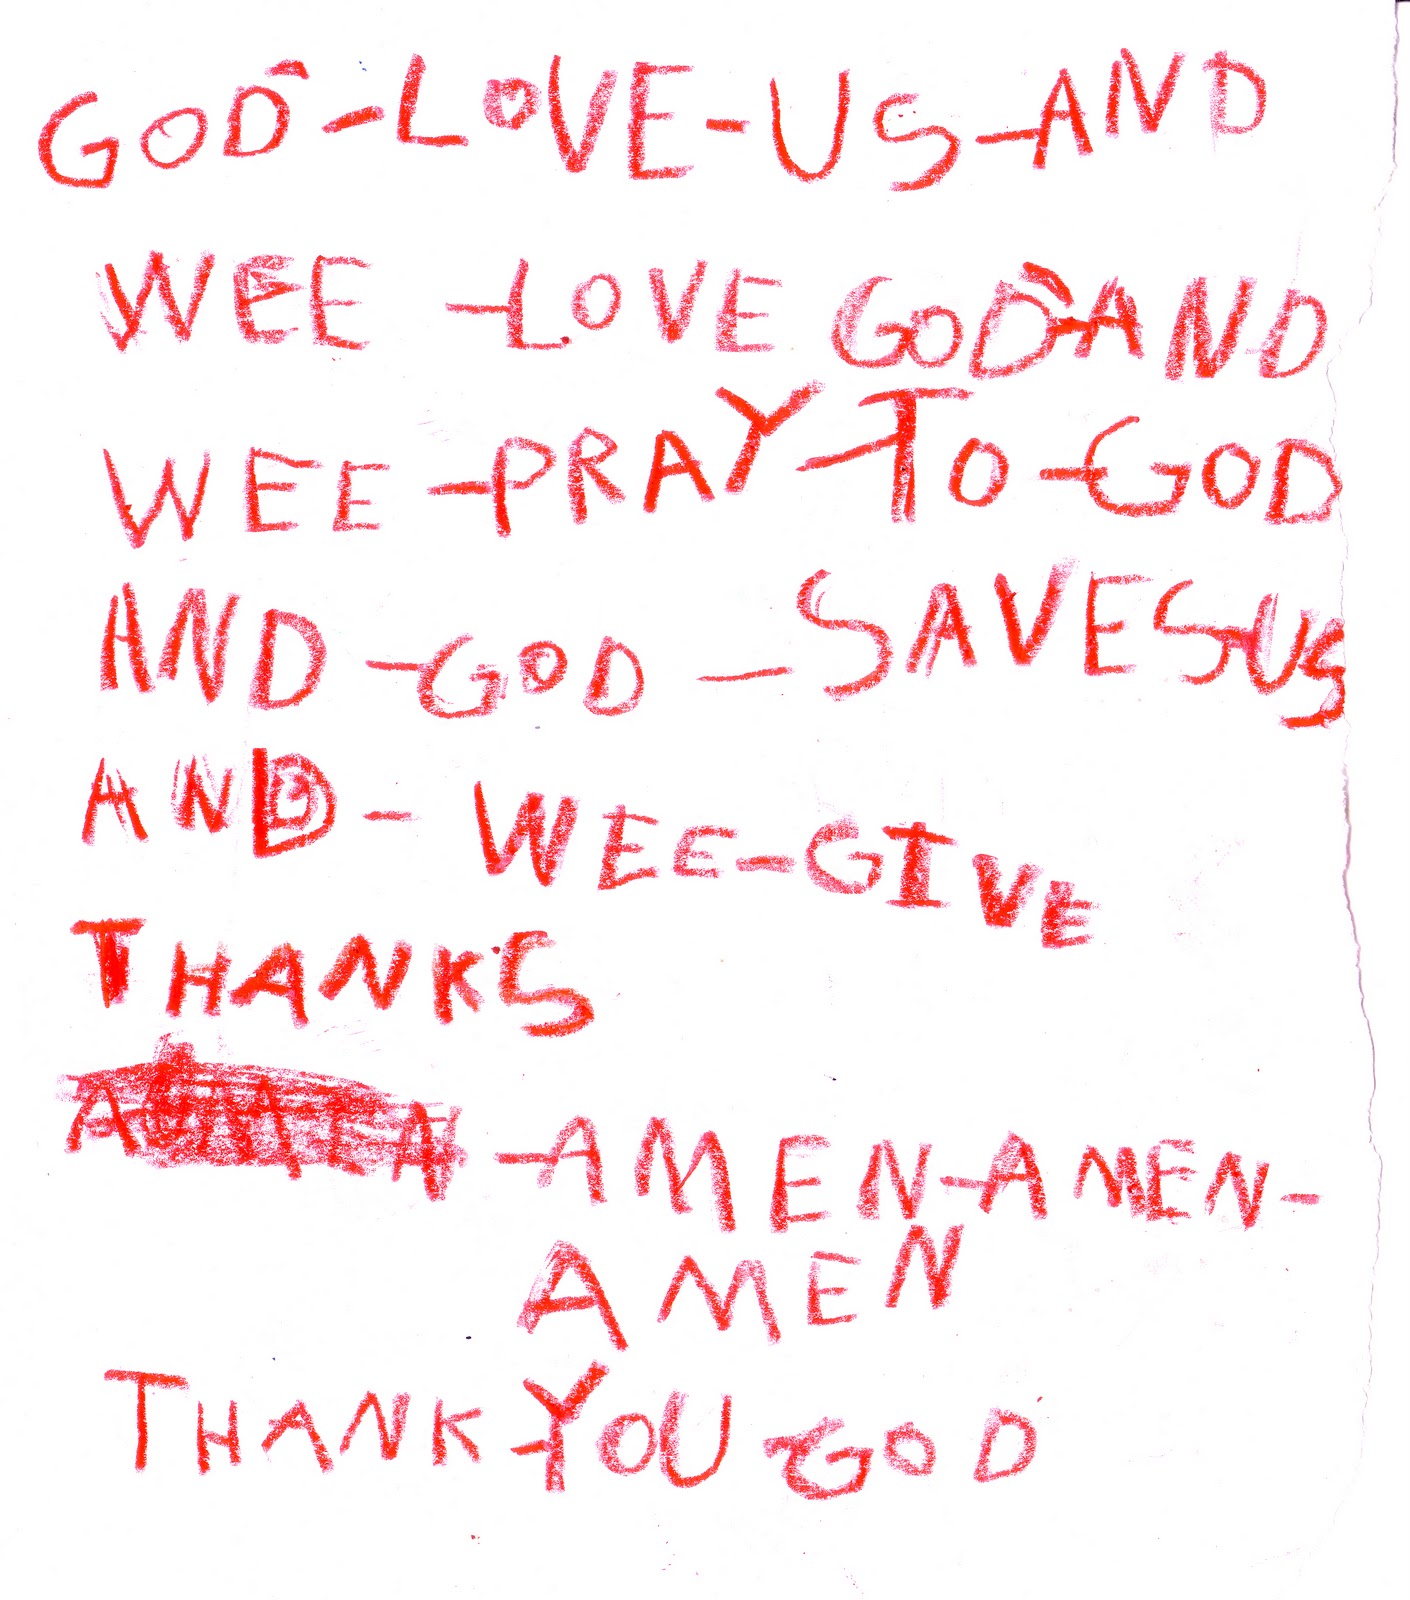 GOD-LOVE-US-AND
WEE -LOVE GOD-AND
WEE-PRAY-TO-GOD
AND-GOD-SAVES-US
AND-WEE-GIVE
THANKS
-AMEN-AMEN-
AMEN
THANK-YOU-GOD